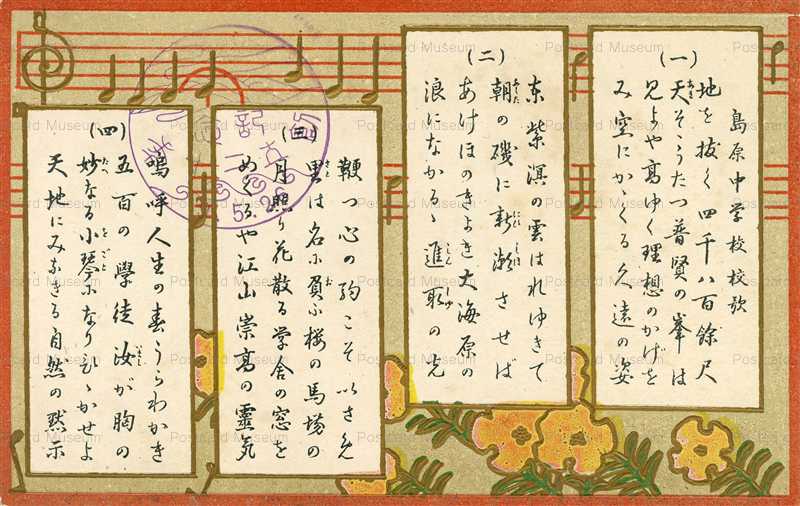 島原中学校校歌
(一)
地を抜く四千八百餘尺
天そゝりたつ普賢の峯は
見よや高ゆく理想のかげを
み空にかゝぐる久遠の姿
(二)
東紫溟の雲はれゆきて
朝の磯に新潮させば
あけほのきよき大海原の
浪になかるゝ進取の光
(三)
鞭つ心の駒こそいさめ
里は名に負ふ桜の馬場の
月照り花散る学舎の窓を
めぐるや江山崇高の靈気
(四)
嗚呼人生の春うらわかき
五百の學徒汝が胸の
妙なる小琴になりひゞかせよ
天地にみなぎる自然の黙示
Postcard Museum